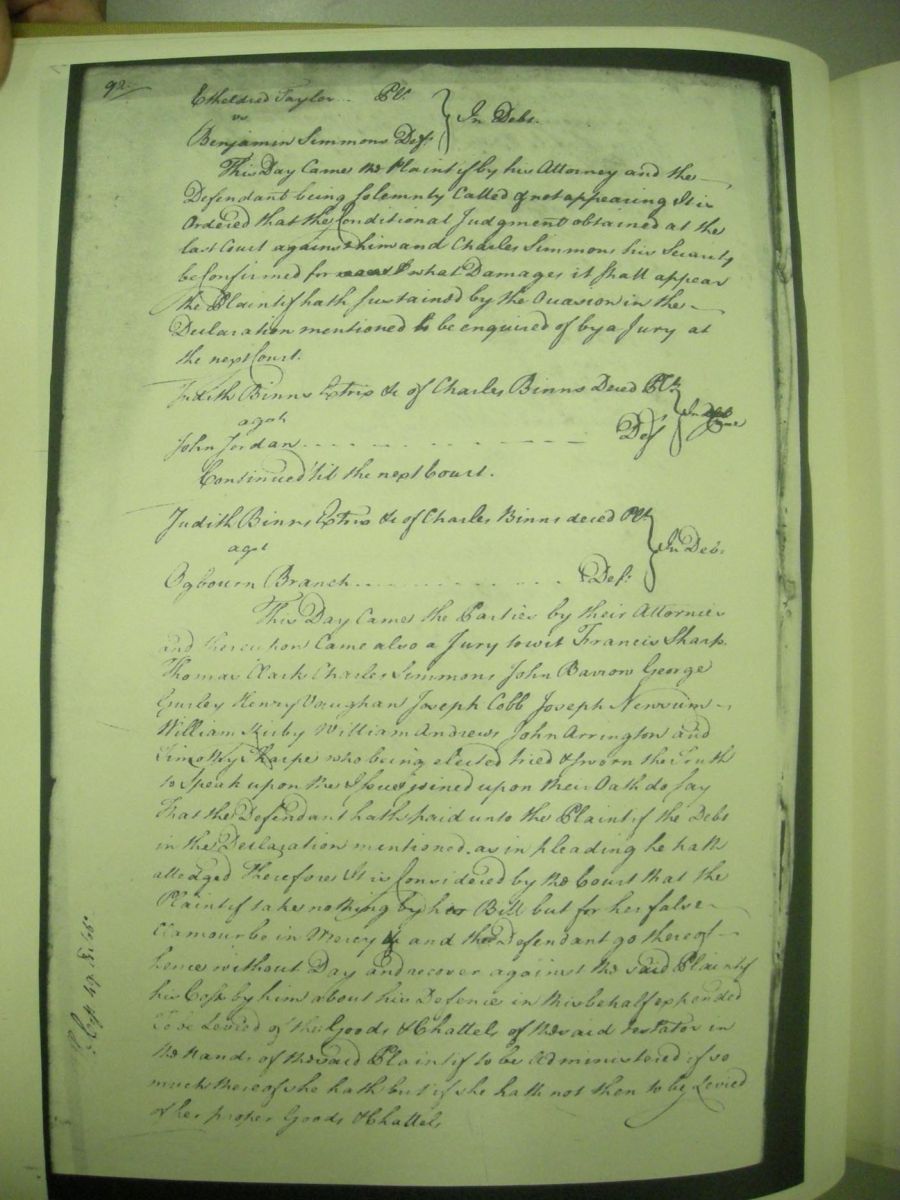 92
Etheldred Taylor Plt.
vs } In Debt.
Benjamin Simmons Deft
This Day Came the Plaintif by his Attorney and the
Defendant being Solemnly Called & not appearing It is
Ordered that the Conditional Judgment obtained at the
last Court against him and Charles Simmons his Security
be Confirmed for what Damages it shall appear
the Plaintif hath Sustained by the Ocasion in the
Declaration mentioned to be enquired of by a Jury at
the next Court.
Judith Binns Extrix &c of Charles Binns Deced Plt
agst } In
John Jordan Deft
Continued 'til the next Court.
Judith Binns Extrix &c of Charles Binns deced Plt
agst } In Debt
Ogbourn Branch Deft
This Day Came the Parties by their Attornies
and thereupon Came also a Jury to wit Francis Sharp
Thomas Clark Charles Simmons John Barrow George
Gurley Henry Vaughan Joseph Cobb Joseph Newsum
William Kirby William Andrews John Arrington and
Timothy Tharpe who being elected tried & sworn the Truth
to Speak upon the Issue joined upon their Oath do say
that the Defendant hath paid unto the Plaintif the Debt
in the Declaration mentioned as in pleading he hath
alledged Therefore It is Considered by the Court that the
Plaintif take nothing by her Bill but for her false
Clamour be in Mercy & and the Defendant go thereof
hence without Day and recover against the said Plaintif
his Costs by him about his Defence in this behalf expended
To be Levied of the Goods & Chattels of the said Testator in
the hands of the said Plaintif to be Administered if so
much thereof she hath but if she hath not then to be Levied
of her proper Goods & Chattels